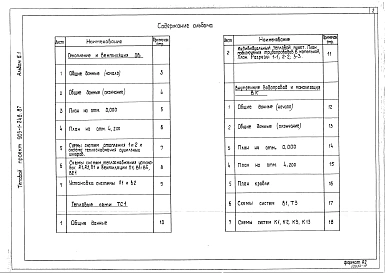 Содержание альбома
Альбом 6.1
Типовой проект 903-1-248.87
Лист
Наименование
Примечан. стр.
Отопление и вентиляция ОВ
1 Общие данные (начало) 3
2 Общие данные (окончание) 4
3 План на отм. 0.000 5
4 План на отм. 4.200 6
5 Схемы систем отопления 1 и 2 и
7
6
8
7 Установка системы П1 и В2 9
Тепловые сети ТС1
1 Общие данные 10
Лист
Наименование
Примечан. стр.
2 Индивидуальный тепловой пункт. План
План. Разрезы 1-1, 2-2, 3-3. 11
Внутренние водопровод и канализация
ВК
1 Общие данные (начало) 12
2 Общие данные (окончание) 13
3 План на отм. 0.000 14
4 План на отм. 4.200 15
5 План кровли 16
6 Схемы систем В1, Т3 17
7 Схемы систем К1, К2, К3, К13 18
формат А2